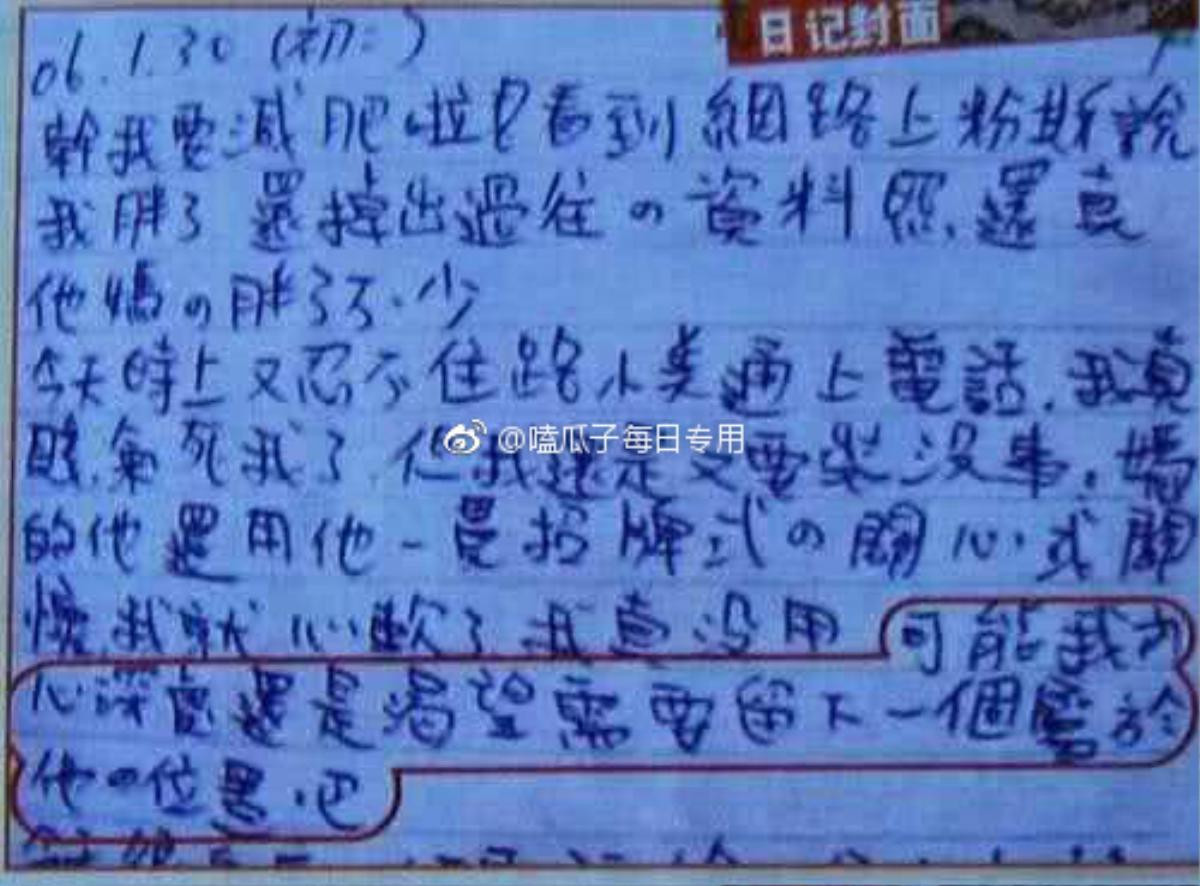 日记封面
06.1.30 (初二)
幹我要減肥啦!只看到網路上粉斯說
我胖了還掉出過往の資料照,還真
他媽の胖了不少
今天晚上又忍不住跟小美通上電話.我真
氣死我了.但我還是又要裝沒事.媽
@嗑瓜子每日专用
的他還用他一貫招牌式の關心式關
懷.我就心軟了.我真沒用 可能我內
心深處還是渴望需要留下一個屬於
他の位置.吧